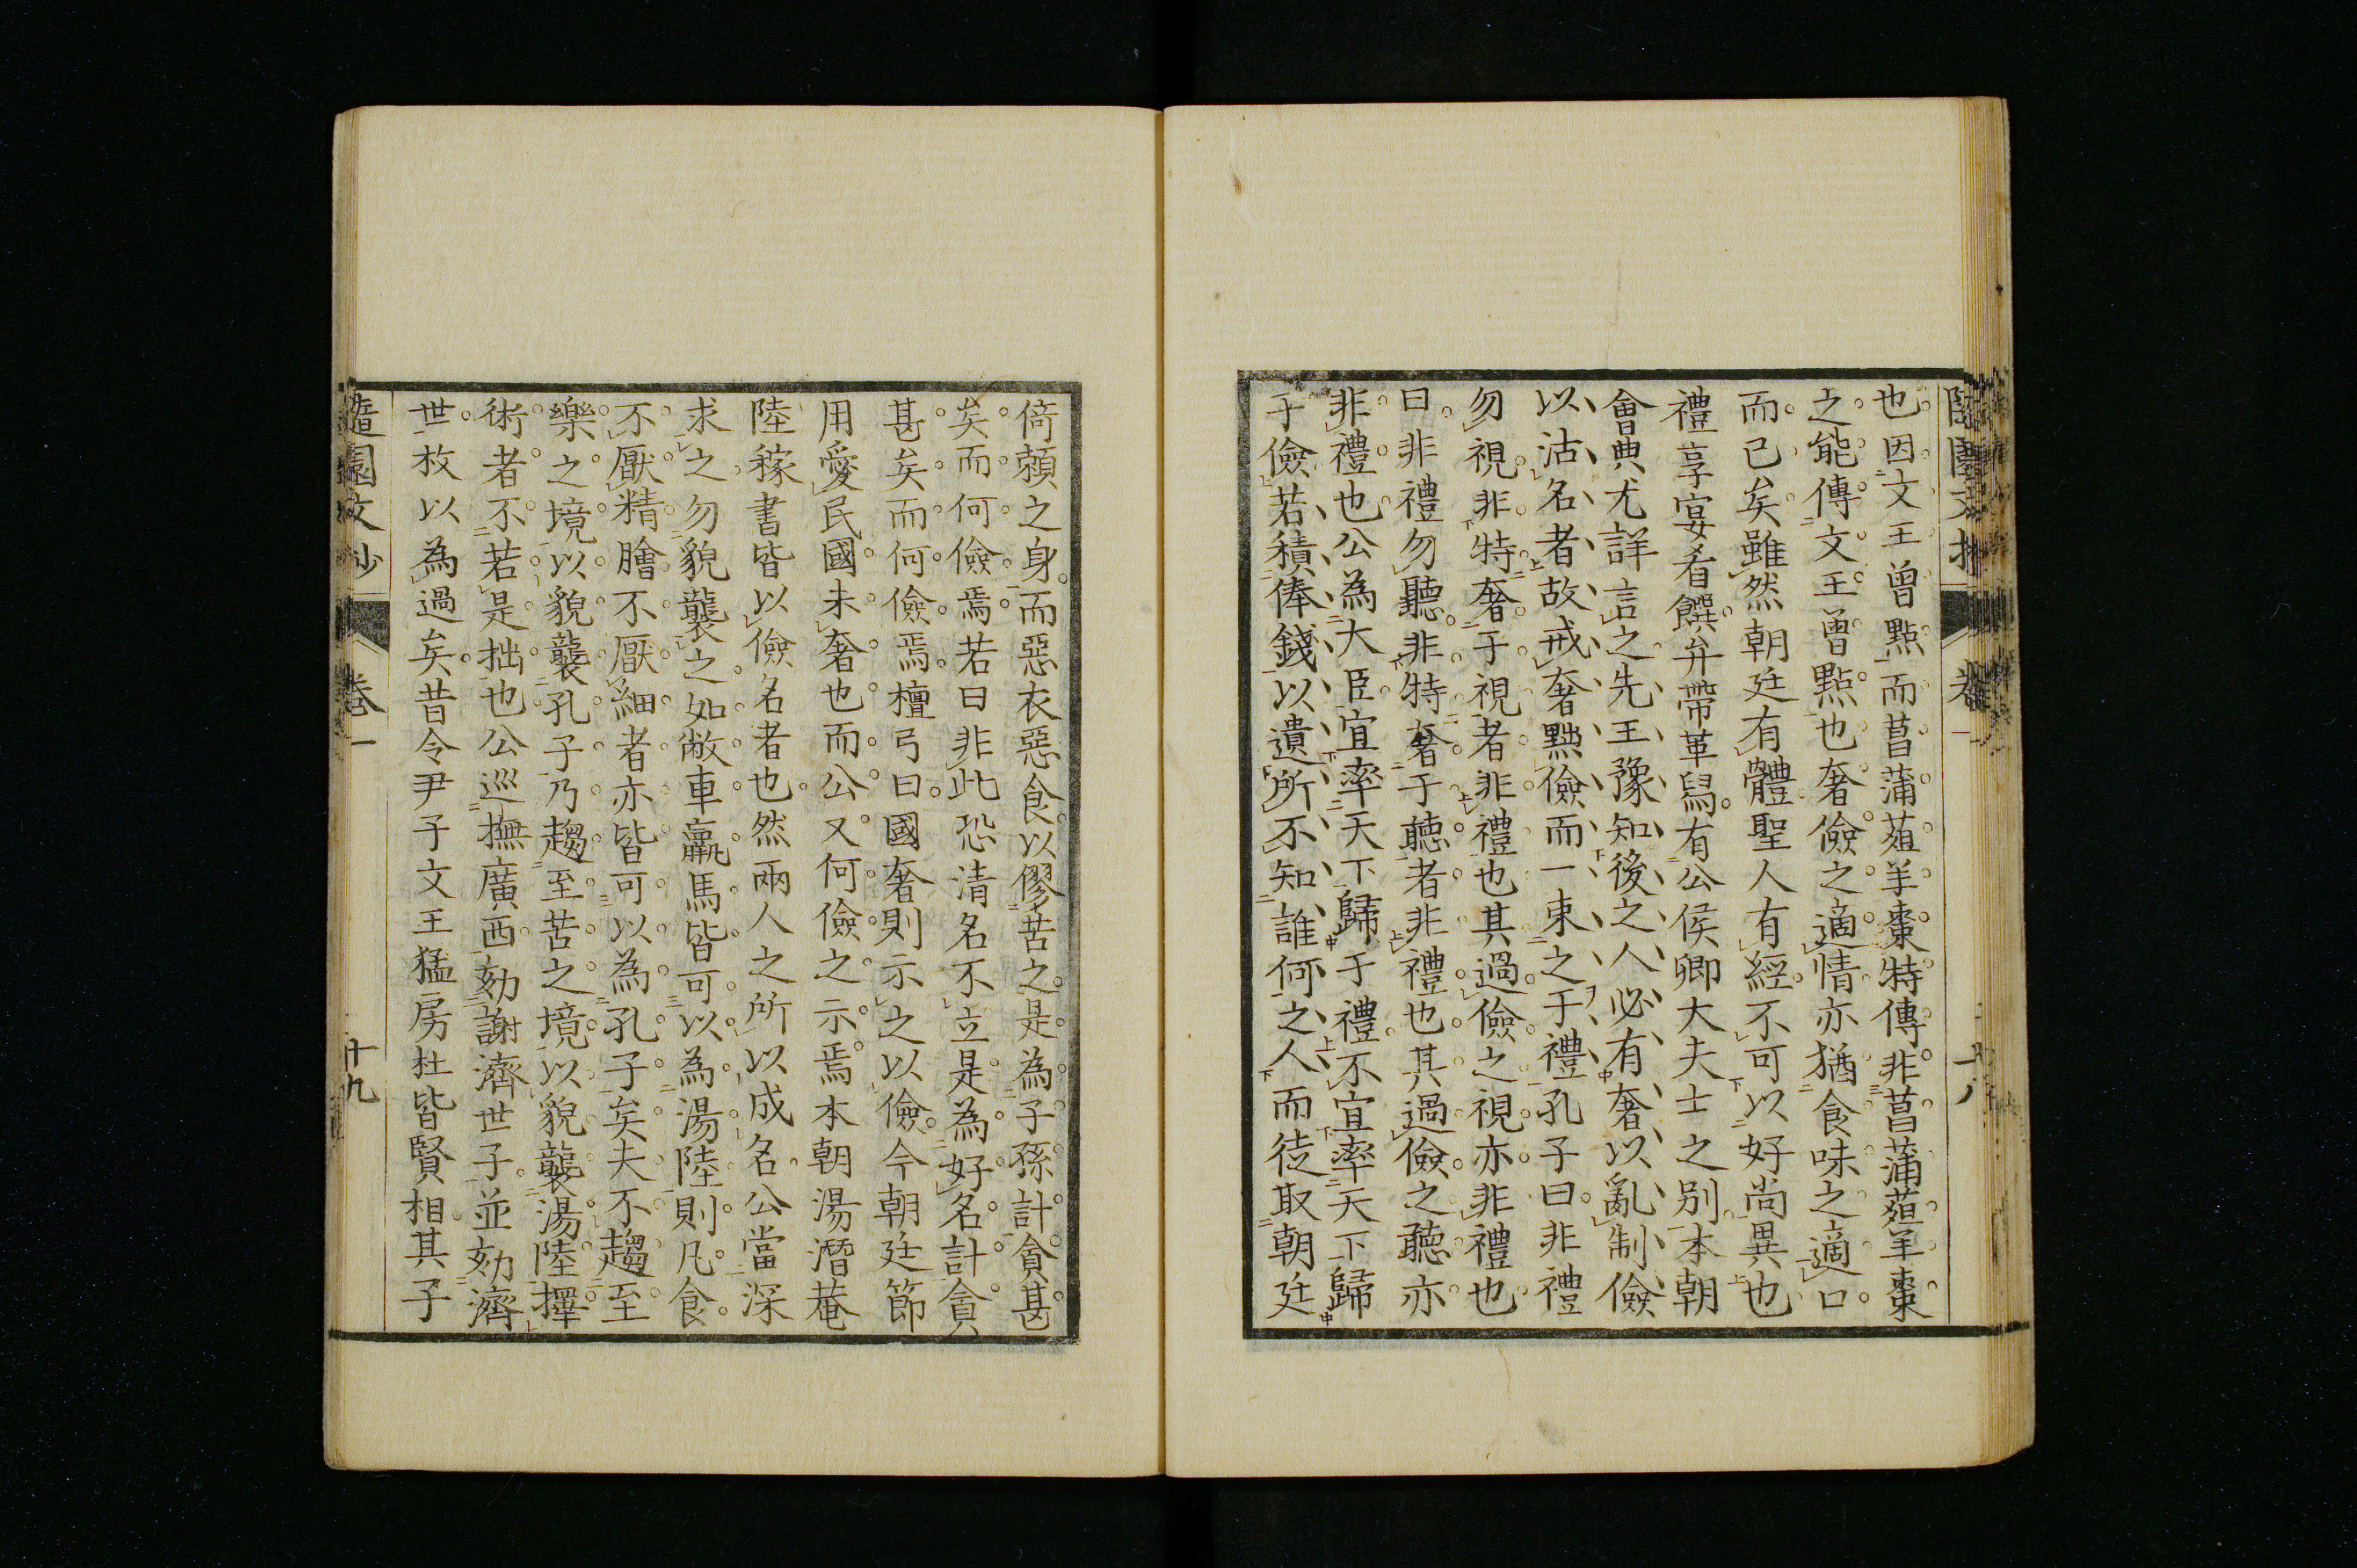 也因文王曾點而菖蒲葅羊棗特傳非菖蒲葅羊棗
之能傳文王曾點也奢儉之適情亦猶食味之適口
而已矣雖然朝廷有體聖人有經不可以好尚異也
禮享宴肴饌弁帶革舄有公侯卿大夫士之別本朝
會典尤詳言之先王豫知後之人必有奢以亂制儉
以沽名者故戒奢黜儉而一束之于禮孔子曰非禮
勿視非特奢于視者非禮也其過儉之視亦非禮也
曰非禮勿聽非特奢于聽者非禮也其過儉之聽亦
非禮也公為大臣宜率天下歸于禮不宜率天下歸
于儉若積俸錢以遺所不知誰何之人而徒取朝廷
倚賴之身而惡衣惡食以僇苦之是為子孫計貪甚
矣而何儉焉若曰非此恐清名不立是為好名計貪
甚矣而何儉焉檀弓曰國奢則示之以儉今朝廷節
用愛民國未奢也而公又何儉之示焉本朝湯潛菴
陸稼書皆以儉名者也然兩人之所以成名公當深
求之勿貌襲之如敝車羸馬皆可以為湯陸則凡食
不厭精膾不厭細者亦皆可以為孔子矣夫不趨至
樂之境以貌襲孔子乃趨至苦之境以貌襲湯陸擇
術者不若是拙也公巡撫廣西劾謝濟世子並劾濟
世枚以為過矣昔令尹子文王猛房杜皆賢相其子
隨園文鈔 卷一 十九